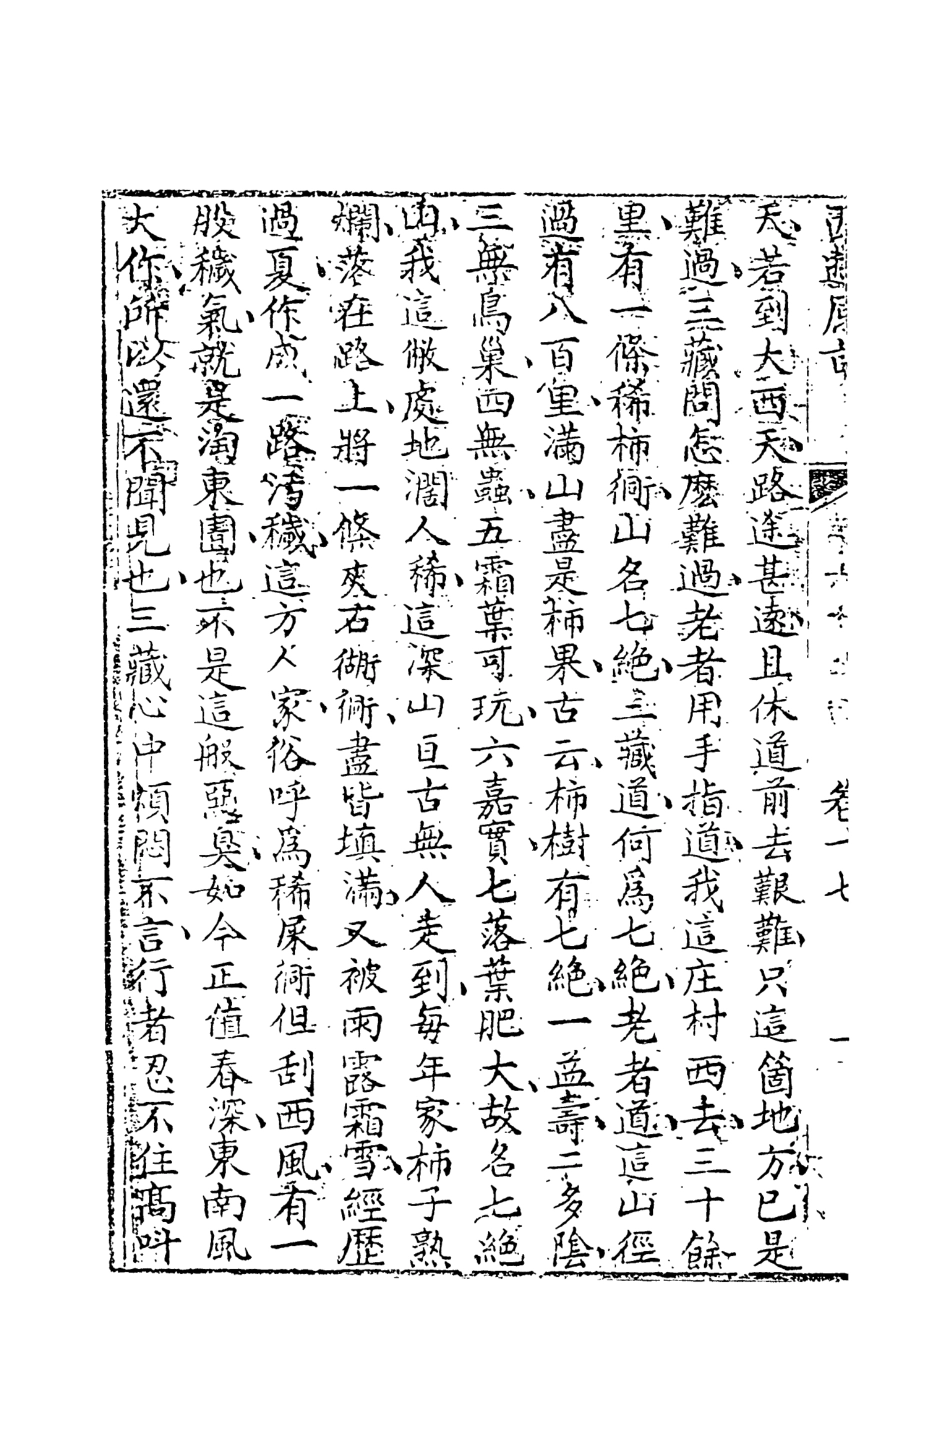 卷十七
天若到大西天路途甚遠且休道前去艱難只這箇地方已是
難過三藏問怎麽難過老者用手指道我這庄村西去三十餘
里有一條稀柿衕山名七絕三藏道何爲七絕老者道這山徑
過有八百里滿山盡是柿果古云柿樹有七絕一益壽二多陰
三無鳥巢四無蟲五霜葉可玩六嘉實七落葉肥大故名七絕
山我這敝處地濶人稀這深山亘古無人走到每年家柿子熟
爛落在路上將一條夾石衚衕盡皆填滿又被雨露霜雪經歷
過夏作成一路污穢這方人家俗呼爲稀屎衕但刮西風有一
股穢氣就是淘東圊也不是這般惡臭如今正值春深東南風
大作所以還不聞見也三藏心中煩悶不言行者忍不住高叫